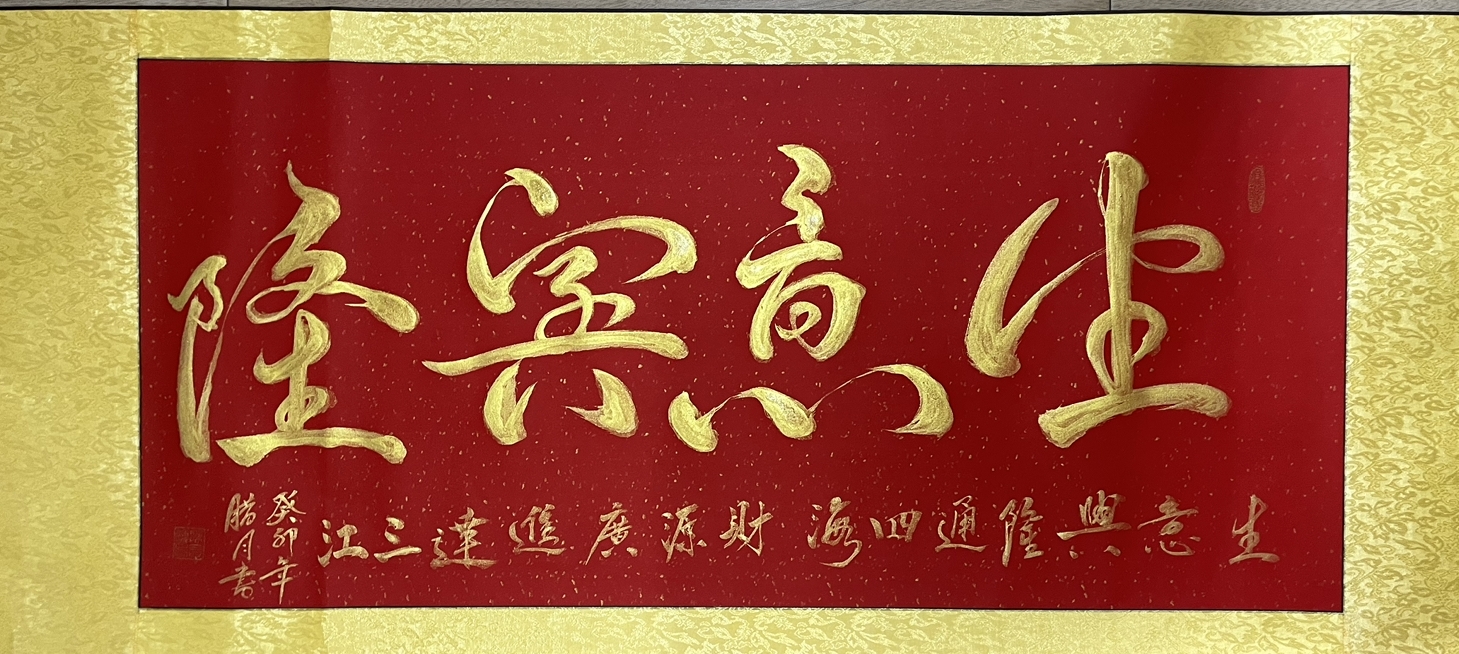 生意興隆
生意興隆通四海財源廣進達三江
癸卯年
腊月書